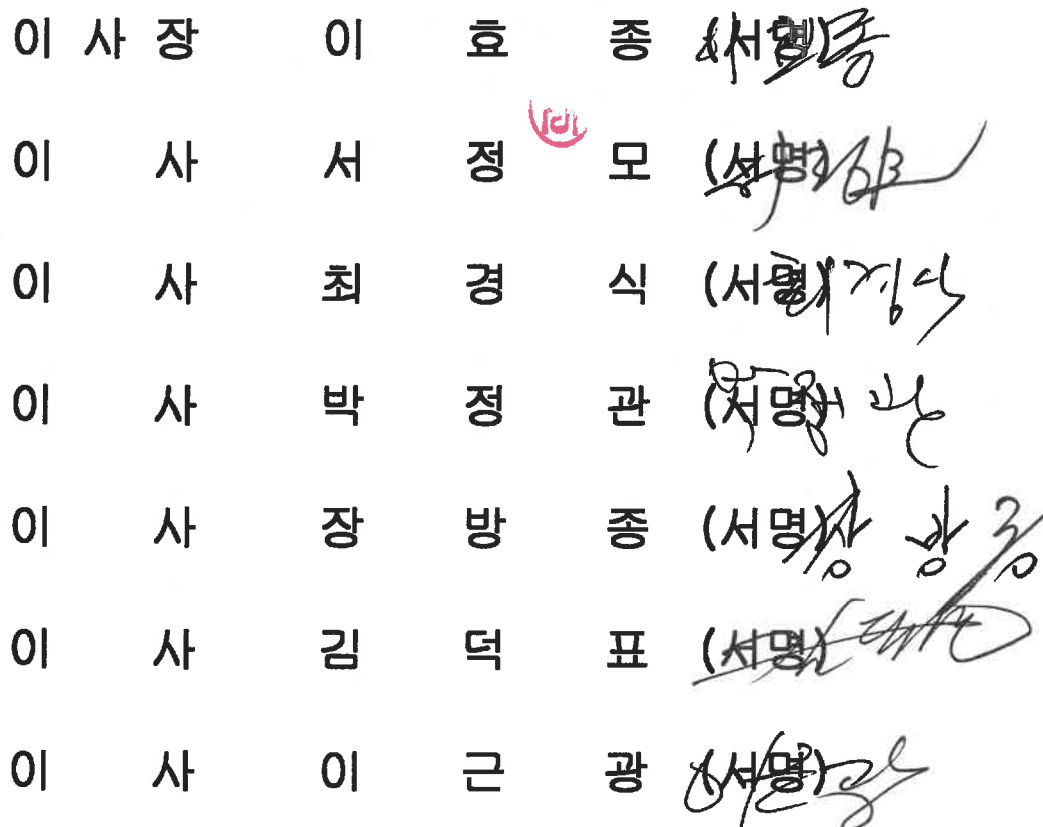 이 사 장 이 효 종 (서명)
이 사 서 정 모 (서명)
이 사 최 경 식 (서명)
이 사 박 정 관 (서명)
이 사 장 방 종 (서명)
이 사 김 덕 표 (서명)
이 사 이 근 광 (서명)